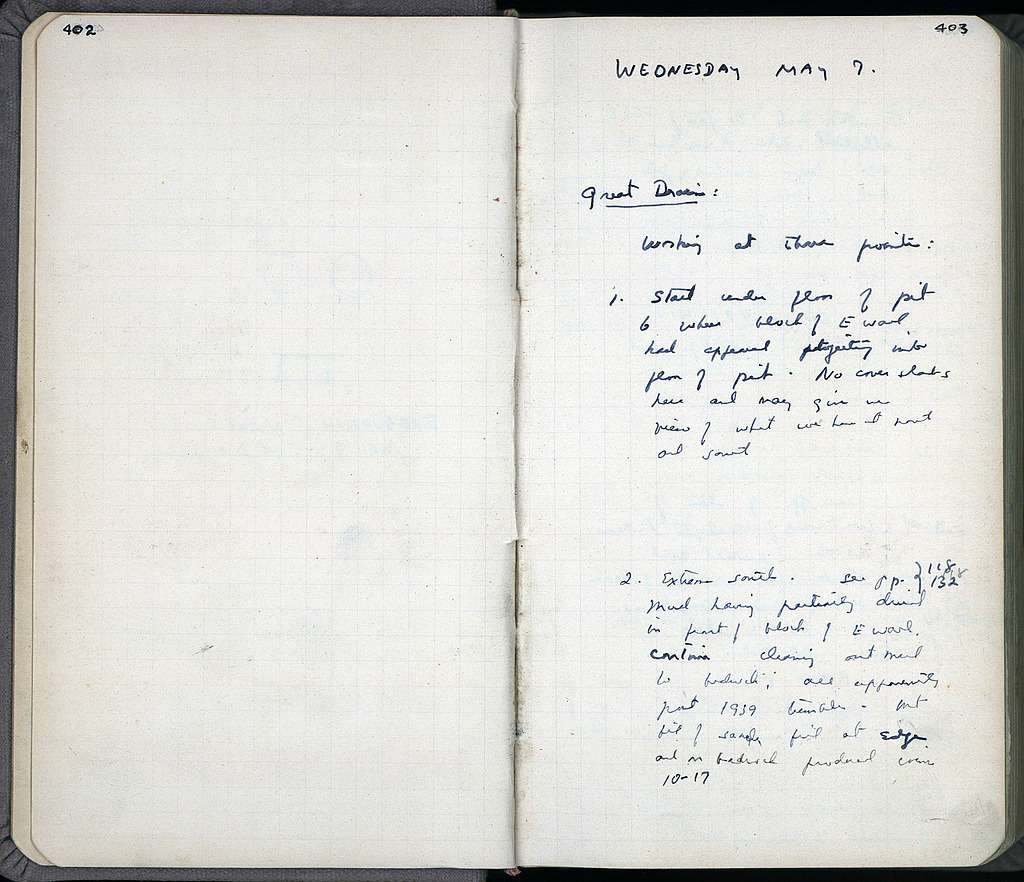 402
403
WEDNESDAY MAY 7.
Great Drain:
Working at three points:
1. Start under floor of pit
6 where block of E wall
had appeared projecting into
floor of pit. No cover slabs
here and may give us
view of what we have at north
and south
2. Extreme south. see pp. } 118,
132
Mud having partially dried
in front of block of E wall.
continue cleaning out mud
to bedrock; all apparently
post 1939 tumble. but
bit of sandy fill at edge
and on bedrock produced coin
10-17